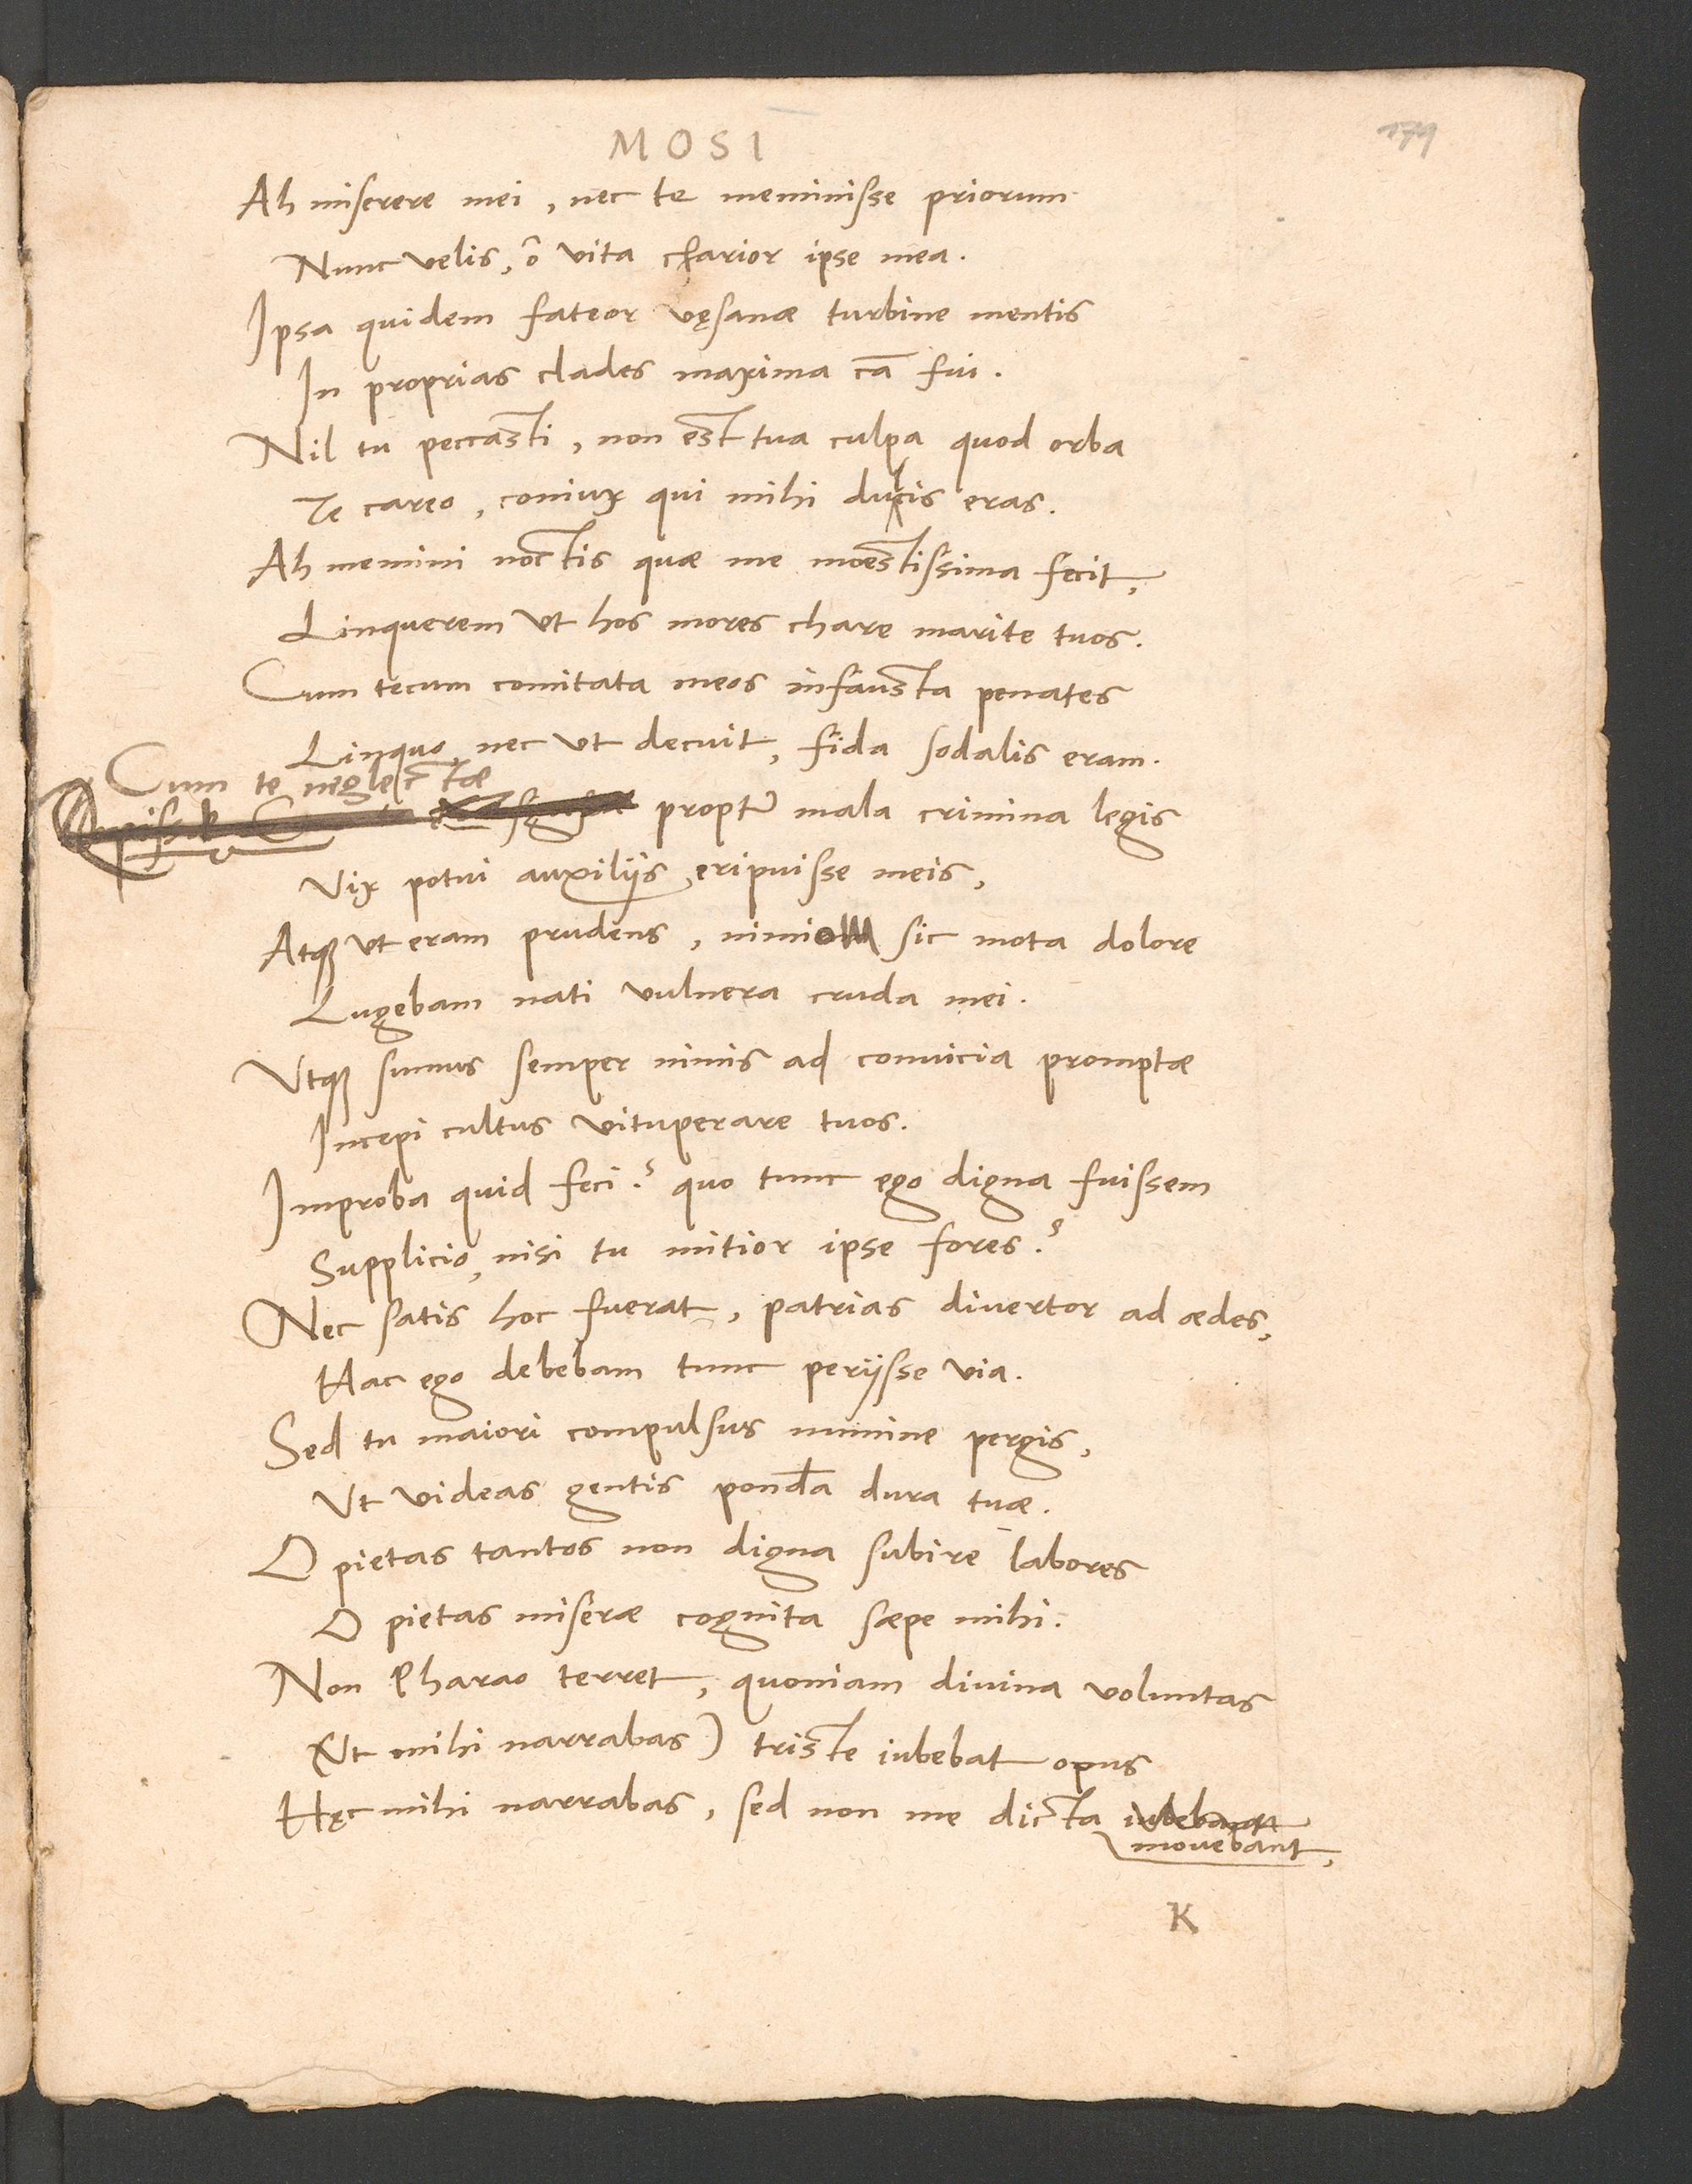 MOSI
179
Ah miserere mei, nec te meminisse priorum
Nunc velis, ô vita charior ipse mea.
Ipsa quidem fateor vęsanæ turbine mentis
In proprias clades maxima cā fui.
Nil tu peccasti, non est tua culpa quod orba
Te careo, coniux qui mihi dulcis eras.
Ah memini noctis quæ me moestissima fecit,
Linquerem ut hos mores chare marite tuos.
Cum tecum comitata meos infausta penates
Linquo, nec ut decuit, fida sodalis eram.
Cum te neglectæ
propter mala crimina legis
Vix potui auxilijs eripuisse meis,
Atque ut eram prudens, nimio sic mota dolore
Lugebam nati vulnera cruda mei.
Utque sumus semper nimis ad convicia promptæ
Incepi cultus vituperare tuos.
Improba quid feci? quo tunc ego digna fuissem
Supplicio, nisi tu mitior ipse fores?
Nec satis hoc fuerat, patrias divertor ad ædes,
Hac ego debebam tunc perijsse via.
Sed tu maiori compulsus numine pergis,
Ut videas gentis pondera dura tuæ.
O pietas tantos non digna subire labores
O pietas miseræ cognita sæpe mihi.
Non Pharao terret, quoniam divina voluntas
(Ut mihi narrabas) triste iubebat opus
Hęc mihi narrabas, sed non me dicta iubebant
movebant,
K